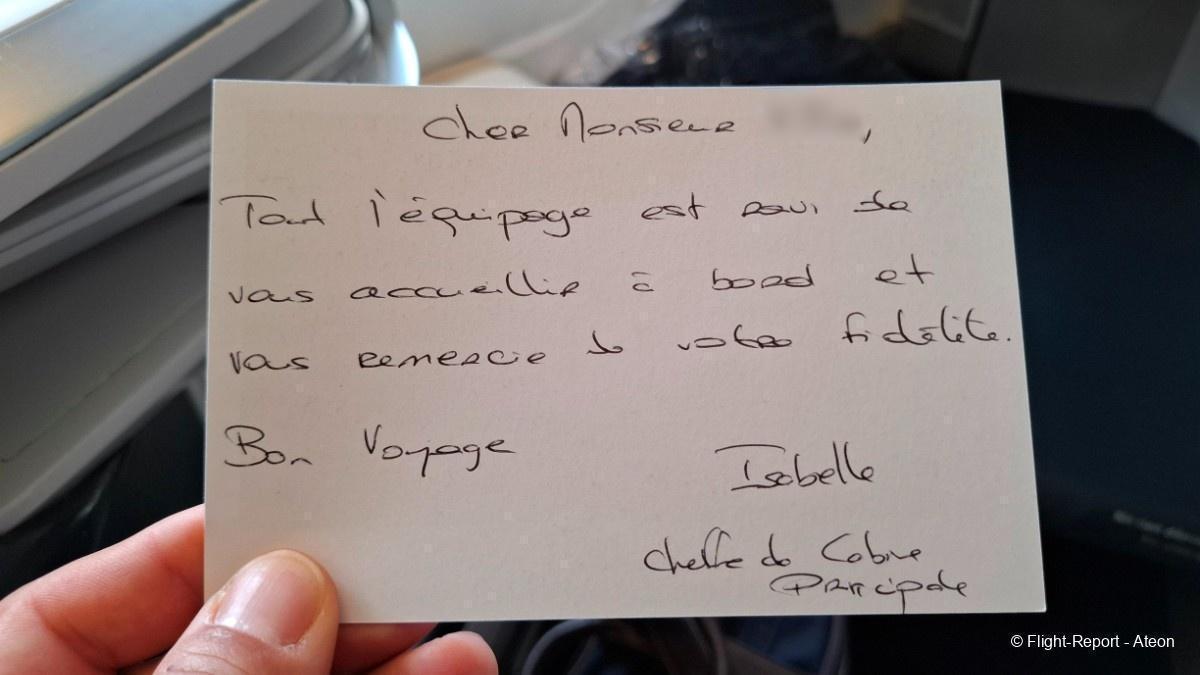 Cher Monsieur ,
Tout l'équipage est ravi de
vous accueillir à bord et
vous remercie de votre fidélité.
Bon Voyage
Isabelle
Cheffe de Cabine
Principale
© Flight-Report - Ateon